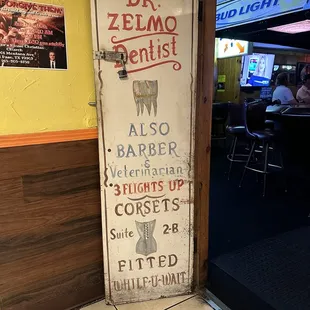 DR.
ZELMO
Dentist
ALSO
BARBER
&
Veterinarian
3 FLIGHTS UP
CORSETS
Suite 2-B
FITTED
WHILE-U-WAIT
BUD LIGHT